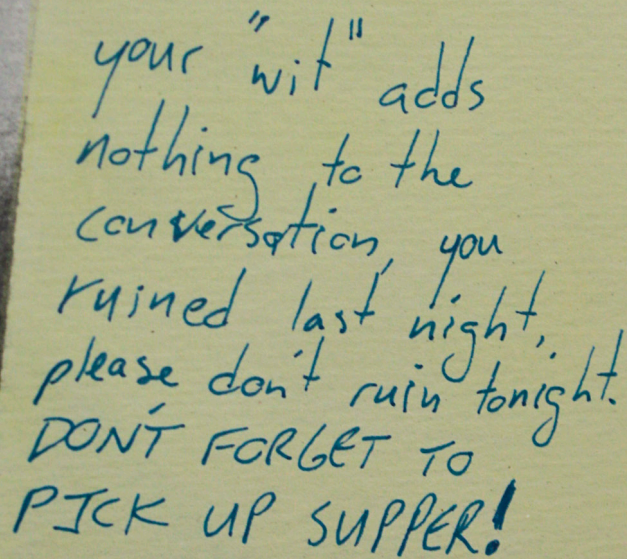 your "wit" adds
nothing to the
conversation, you
ruined last night,
please don't ruin tonight.
DON'T FORGET TO
PICK UP SUPPER!